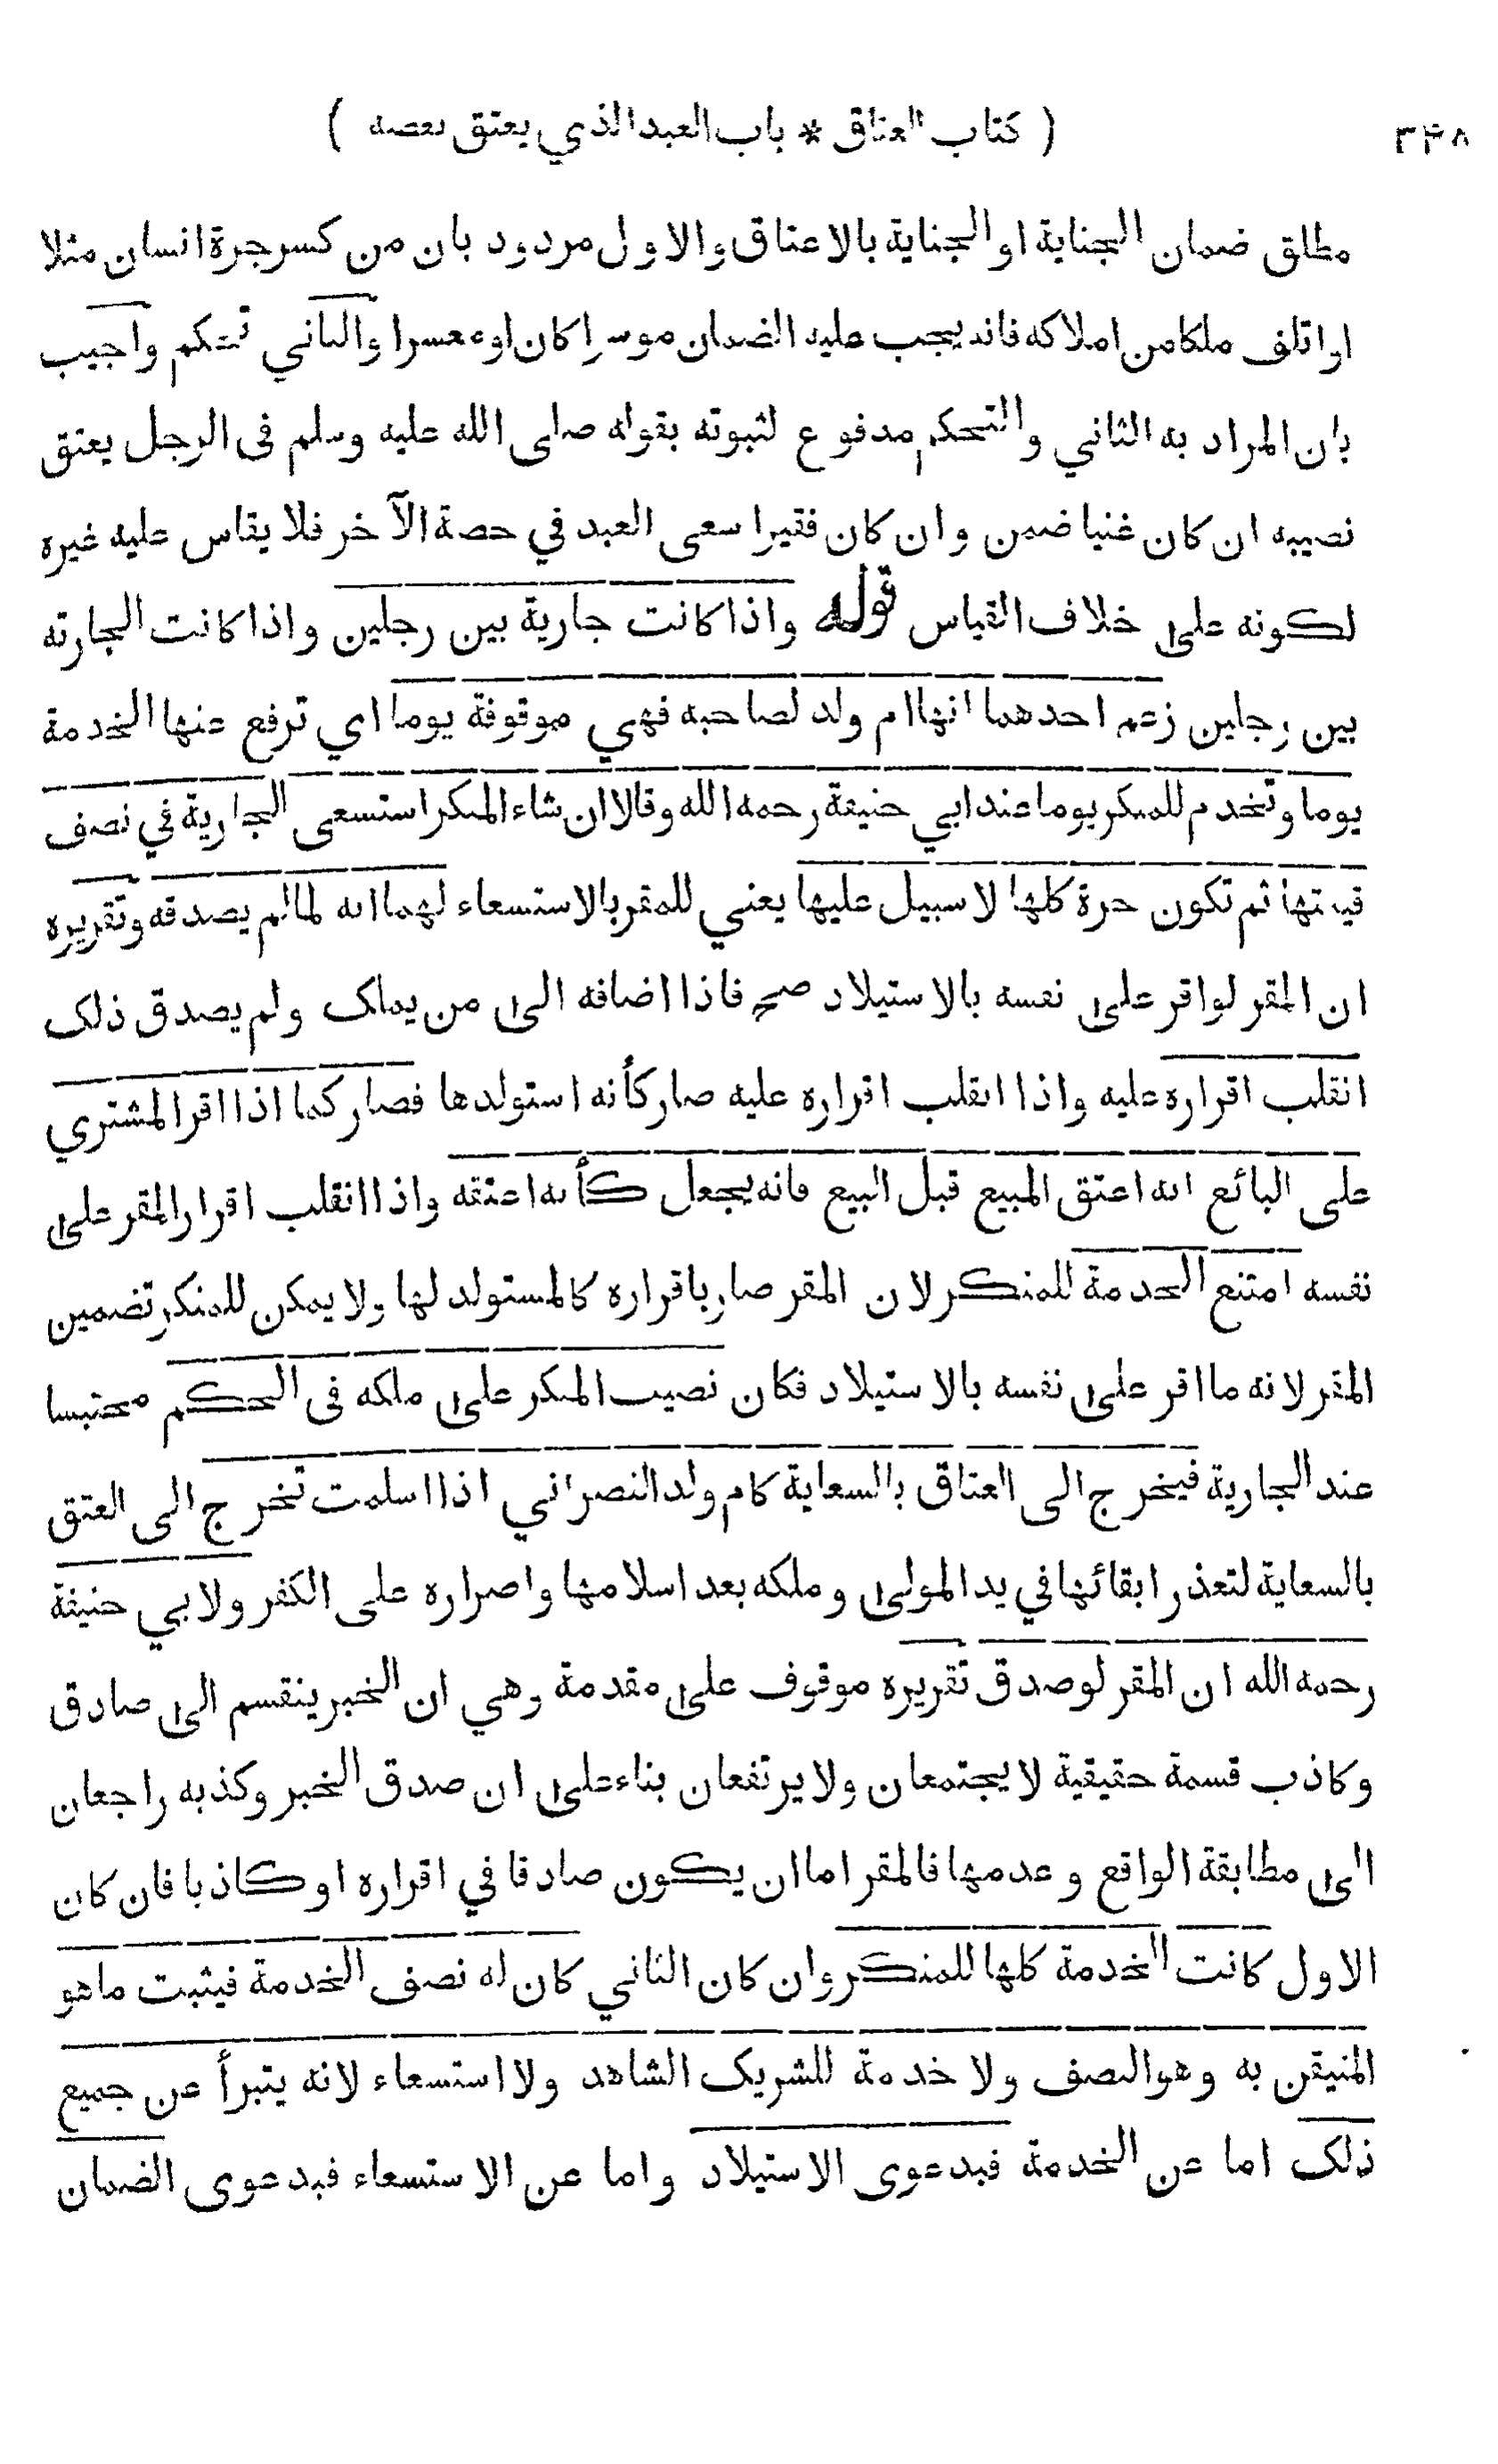 ٣٤٨ ( كتاب العتاق * باب العبد الذي يعتق بعضه )
مطلق ضمان الجناية او الجناية بالاعتاق والاول مردود بان من كسر جرة انسان مثلا
او اتلف ملكا من املاكه فانه يجب عليه الضمان موسرا كان او معسرا والثاني تحكم واجيب
بان المراد به الثاني والتحكم مدفوع لثبوته بقوله صلى الله عليه وسلم في الرجل يعتق
نصيبه ان كان غنيا ضمن وان كان فقيرا سعى العبد في حصة الآخر فلا يقاس عليه غيره
لكونه على خلاف القياس قوله واذا كانت جارية بين رجلين واذا كانت الجارية
بين رجلين زعم احدهما انها ام ولد لصاحبه فهي موقوفة يوما اي ترفع عنها الخدمة
يوما وتخدم للمنكر يوما عند ابي حنيفة رحمه الله وقالا ان شاء المنكر استسعى الجارية في نصف
قيمتها ثم تكون حرة كلها لا سبيل عليها يعني للمقر بالاستسعاء لهما انه لما لم يصدقه وتقريره
ان المقر لو اقر على نفسه بالاستيلاد صح فاذا اضافه الى من يملك ولم يصدق ذلك
انقلب اقراره عليه واذا انقلب اقراره عليه صار كأنه استولدها فصار كما اذا اقر المشتري
على البائع انه اعتق المبيع قبل البيع فانه يجعل كأنه اعتقه واذا انقلب اقرار المقر على
نفسه امتنع الخدمة للمنكر لان المقر صار باقراره كالمستولد لها ولا يمكن للمنكر تضمين
المقر لانه ما اقر على نفسه بالاستيلاد فكان نصيب المنكر على ملكه في الحكم محتبسا
عند الجارية فيخرج الى العتاق بالسعاية كام ولد النصراني اذا اسلمت تخرج الى العتق
بالسعاية لتعذر ابقائها في يد المولى وملكه بعد اسلامها واصراره على الكفر ولابي حنيفة
رحمه الله ان المقر لو صدق تقريره موقوف على مقدمة وهي ان الخبر ينقسم الى صادق
وكاذب قسمة حقيقية لا يجتمعان ولا يرتفعان بناء على ان صدق الخبر وكذبه راجعان
الى مطابقة الواقع وعدمها فالمقر اما ان يكون صادقا في اقراره او كاذبا فان كان
الاول كانت الخدمة كلها للمنكر وان كان الثاني كان له نصف الخدمة فيثبت ما هو
المتيقن به وهو النصف ولا خدمة للشريك الشاهد ولا استسعاء لانه يتبرأ عن جميع
ذلك اما عن الخدمة فبدعوى الاستيلاد واما عن الاستسعاء فبدعوى الضمان